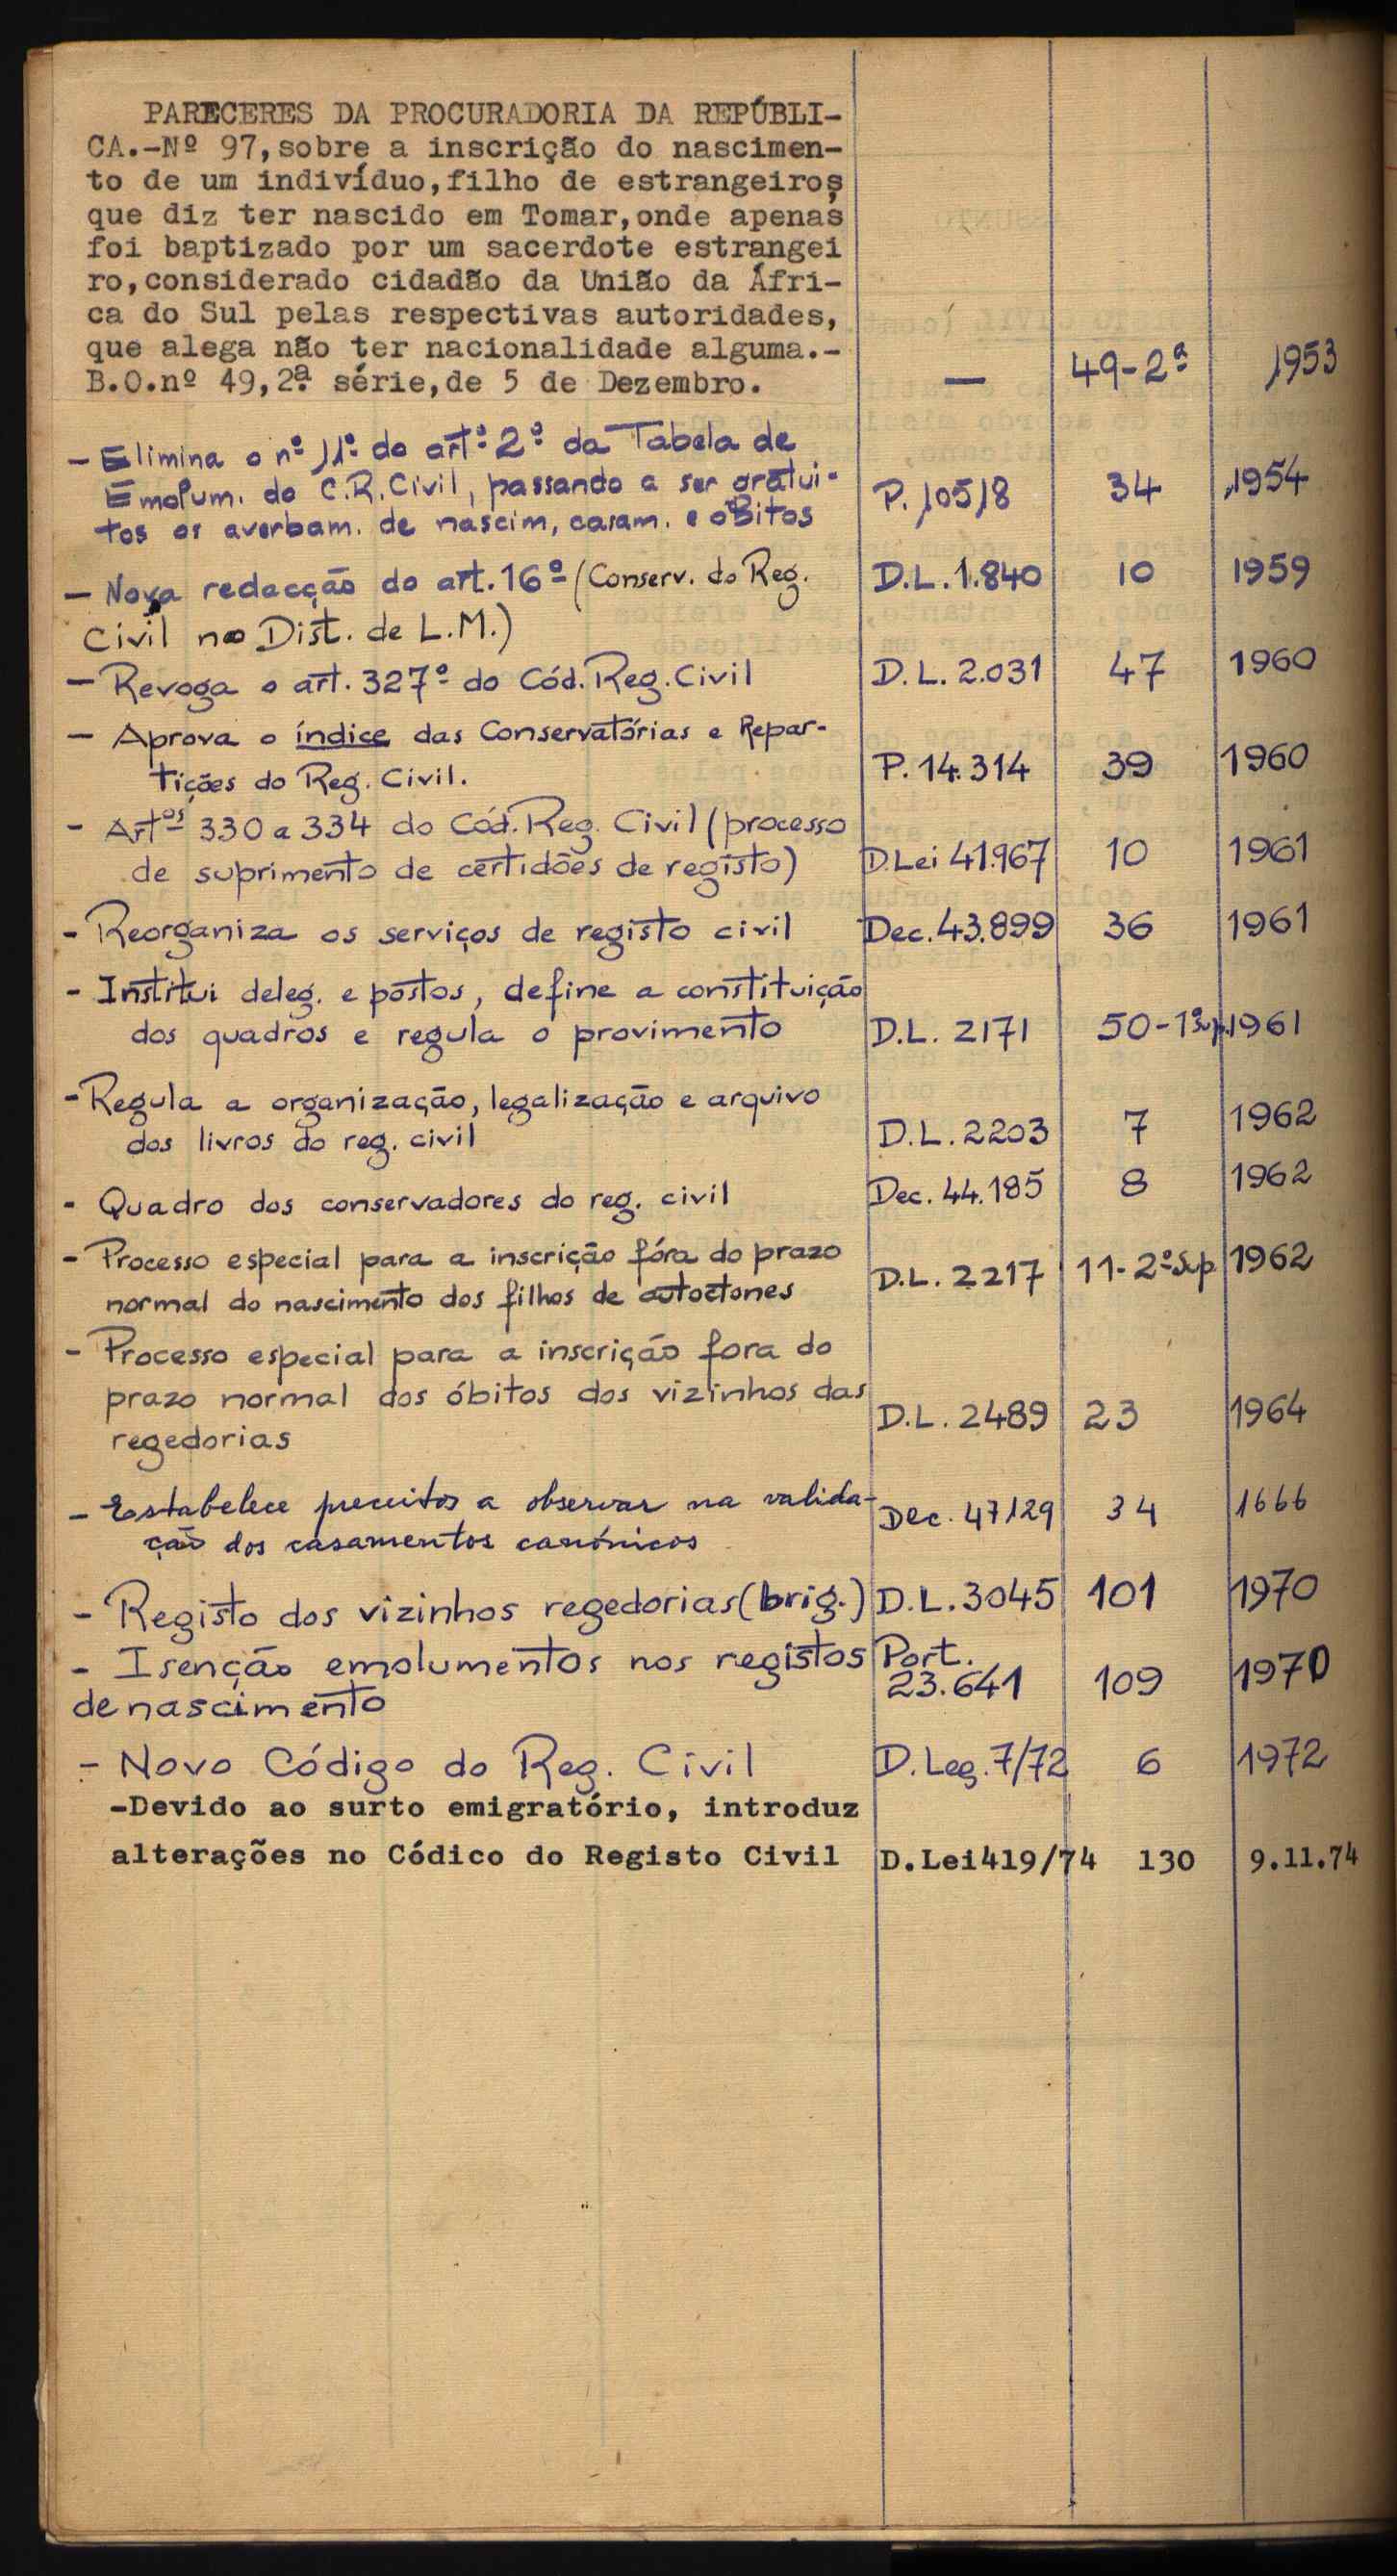 PARECERES DA PROCURADORIA DA REPÚBLI-
CA.-Nº 97,sobre a inscrição do nascimen-
to de um indivíduo,filho de estrangeiros
que diz ter nascido em Tomar,onde apenas
foi baptizado por um sacerdote estrangei
ro,considerado cidadão da União da Áfri-
ca do Sul pelas respectivas autoridades,
que alega não ter nacionalidade alguma.-
B.O.nº 49,2ª série,de 5 de Dezembro. — 49-2ª 1953
- Elimina o nº 11º do artº 2º da Tabela de
Emolum. do C.R.Civil, passando a ser gratui-
tos os averbam. de nascim, casam. e oBitos P. 10518 34 1954
- Nova redacção do art. 16º (Conserv. do Reg. D.L. 1.840 10 1959
Civil no Dist. de L.M.)
- Revoga o art. 327º do Cód. Reg. Civil D.L. 2.031 47 1960
- Aprova o índice das Conservatórias e Repar-
tições do Reg. Civil. P. 14.314 39 1960
- Artºs 330 a 334 do Cód. Reg. Civil (processo
de suprimento de certidões de registo) D.Lei 41.967 10 1961
- Reorganiza os serviços de registo civil Dec. 43.899 36 1961
- Institui deleg. e postos, define a constituição
dos quadros e regula o provimento D.L. 2171 50-1ºSup. 1961
- Regula a organização, legalização e arquivo
dos livros do reg. civil D.L. 2203 7 1962
- Quadro dos conservadores do reg. civil Dec. 44.185 8 1962
- Processo especial para a inscrição fóra do prazo
normal do nascimento dos filhos de autoctones D.L. 2217 11-2ºSup. 1962
- Processo especial para a inscrição fora do
prazo normal dos óbitos dos vizinhos das
regedorias D.L. 2489 23 1964
- Estabelece preceitos a observar na valida-
ção dos casamentos canónicos Dec. 47129 34 1666
- Registo dos vizinhos regedorias (brig.) D.L. 3045 101 1970
- Isenção emolumentos nos registos Port.
de nascimento 23.641 109 1970
- Novo Código do Reg. Civil D. Leg. 7/72 6 1972
-Devido ao surto emigratório, introduz
alterações no Códico do Registo Civil D.Lei419/74 130 9.11.74